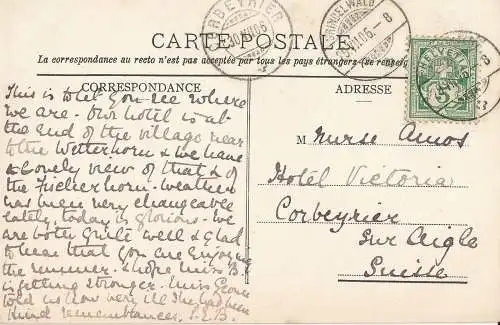 CORBEYRIER
GRINDELWALD
CARTE POSTALE
La correspondance au recto n'est pas acceptée par tous les pays étrangers
CORRESPONDANCE
ADRESSE
This is to let you see where
we are. Our hotel is at
the end of the village near
to the Wetterhorn & we have
a lovely view of that & of
the Fischerhorn - weather
has been very changeable
lately, today is glorious - we
are both quite well & glad
to hear that you are enjoying
the summer. I hope Miss B.
is getting stronger. Miss
told us how very ill she had been
Kind remembrances. S.E.B.
M Nurse Amos
Hotel Victoria
Corbeyrier
sur Aigle
Suisse